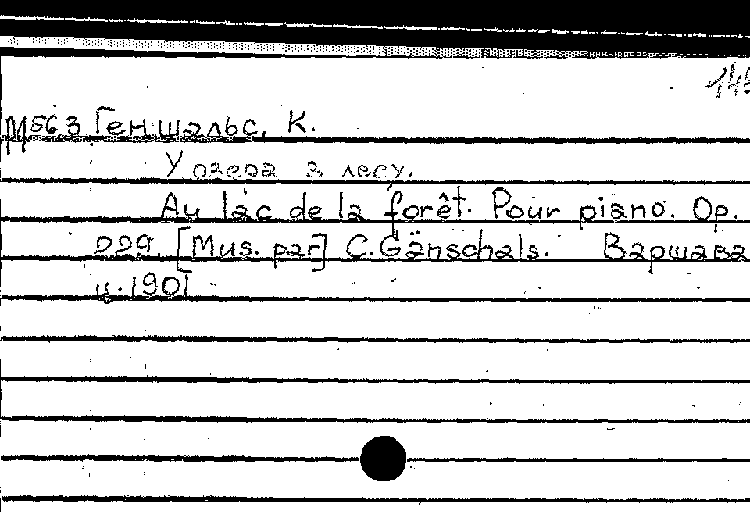 М563 Геншальс, К.
У озера в лесу.
Au lac de la forêt. Pour piano. Op.
229. [Mus. par] C. Gänschals. Варшава
ц. 1901